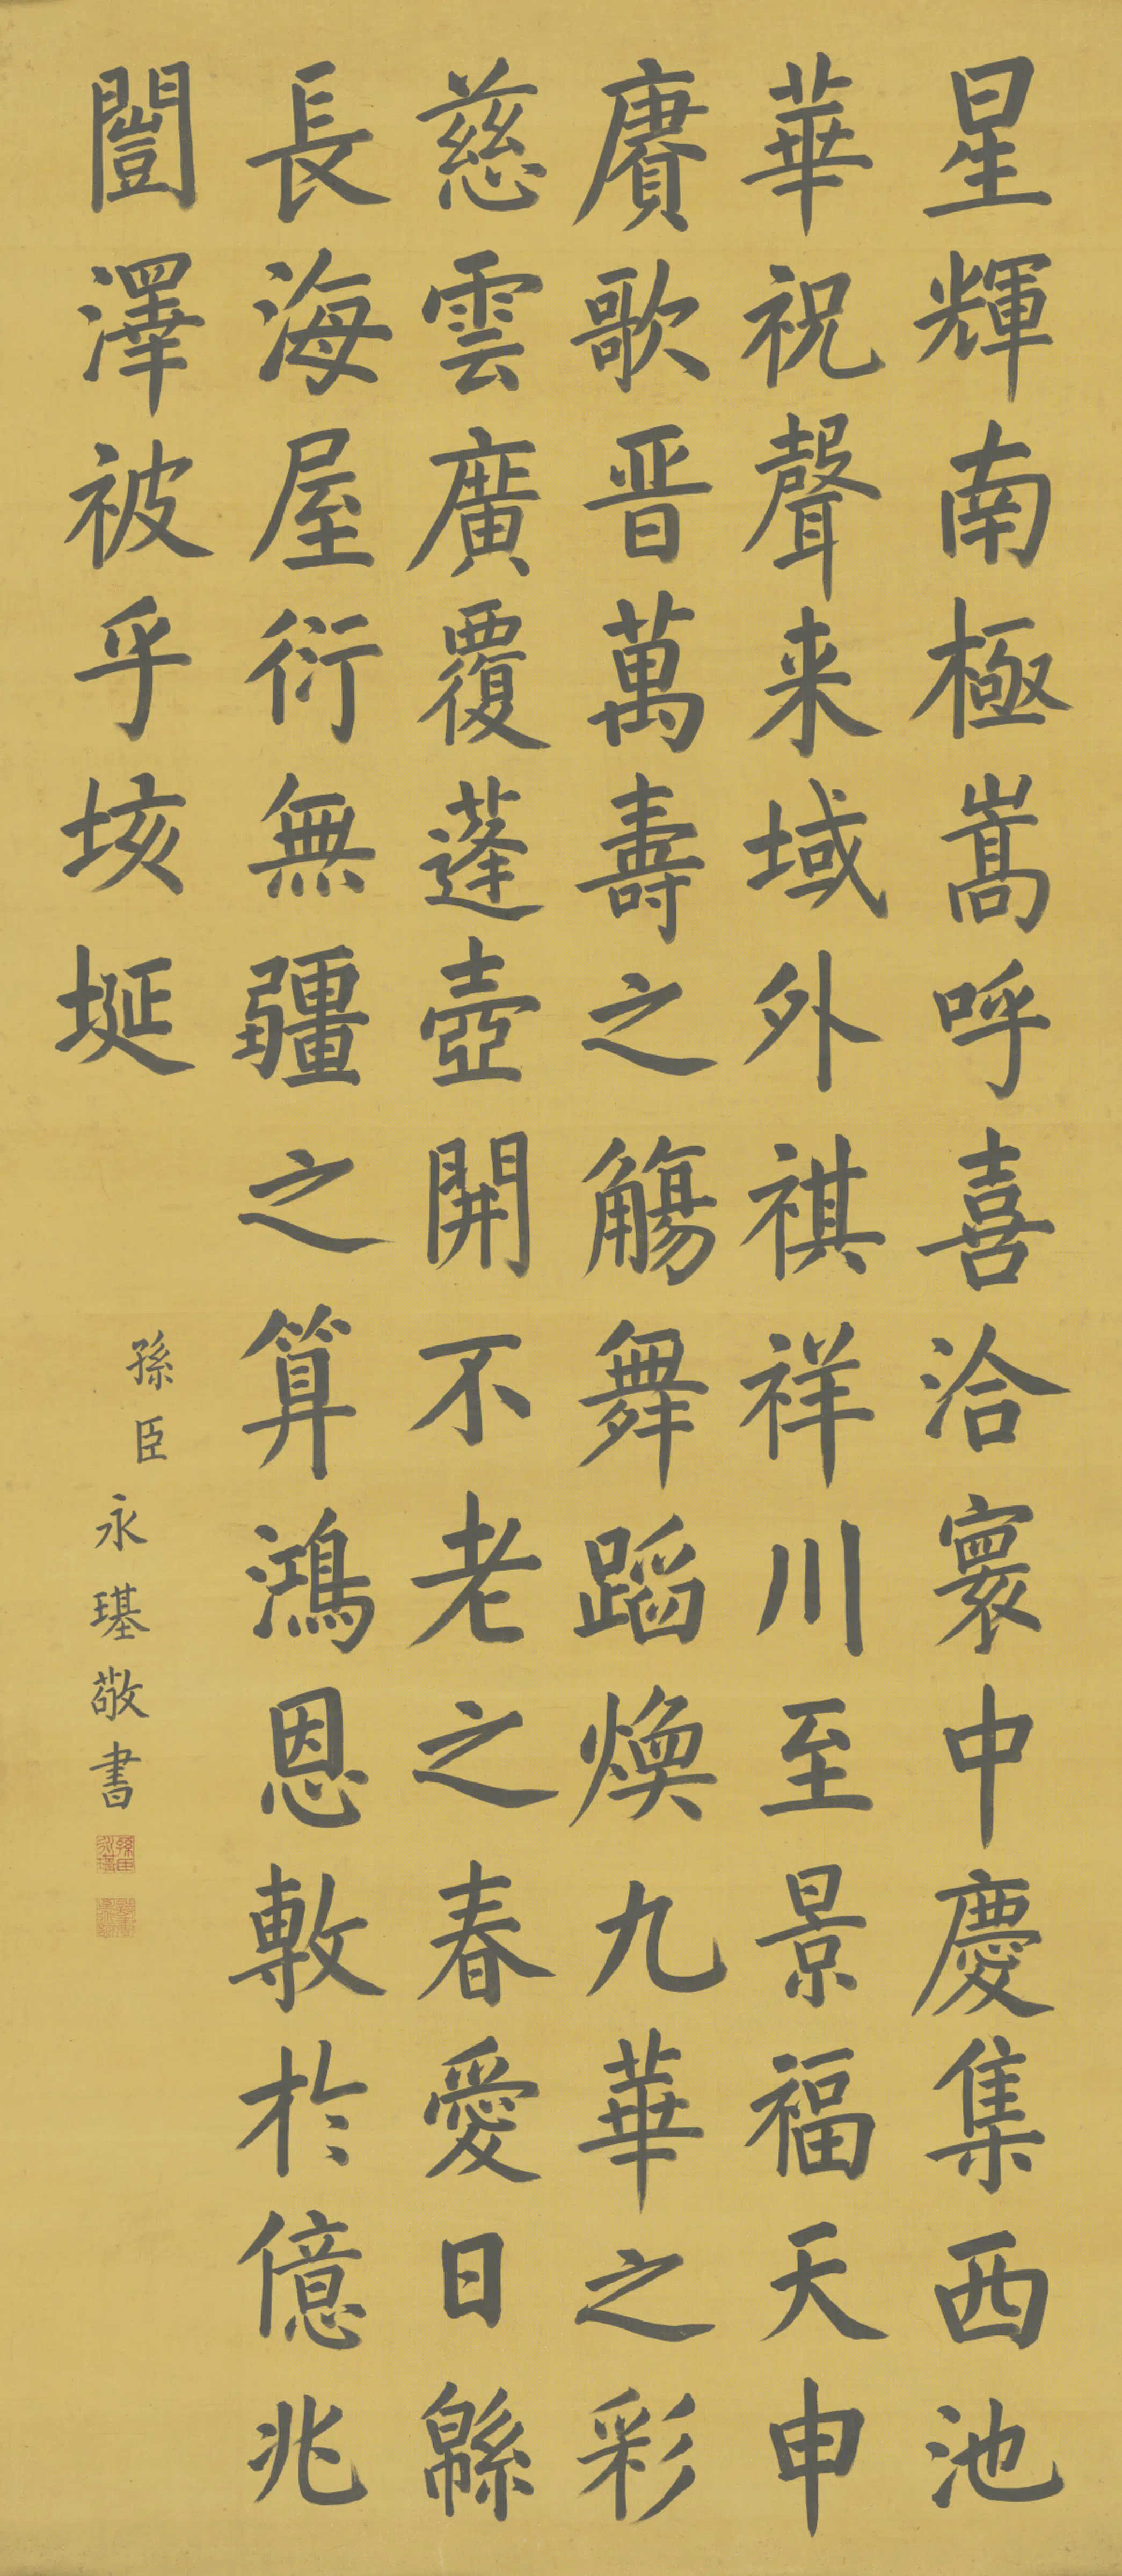 星輝南極嵩呼喜洽寰中慶集西池
華祝聲来域外祺祥川至景福天申
賡歌晋萬壽之觴舞蹈煥九華之彩
慈雲廣覆蓬壺開不老之春愛日緜
長海屋衍無疆之算鴻恩敷於億兆
闓澤被乎垓埏
孫臣永璂敬書